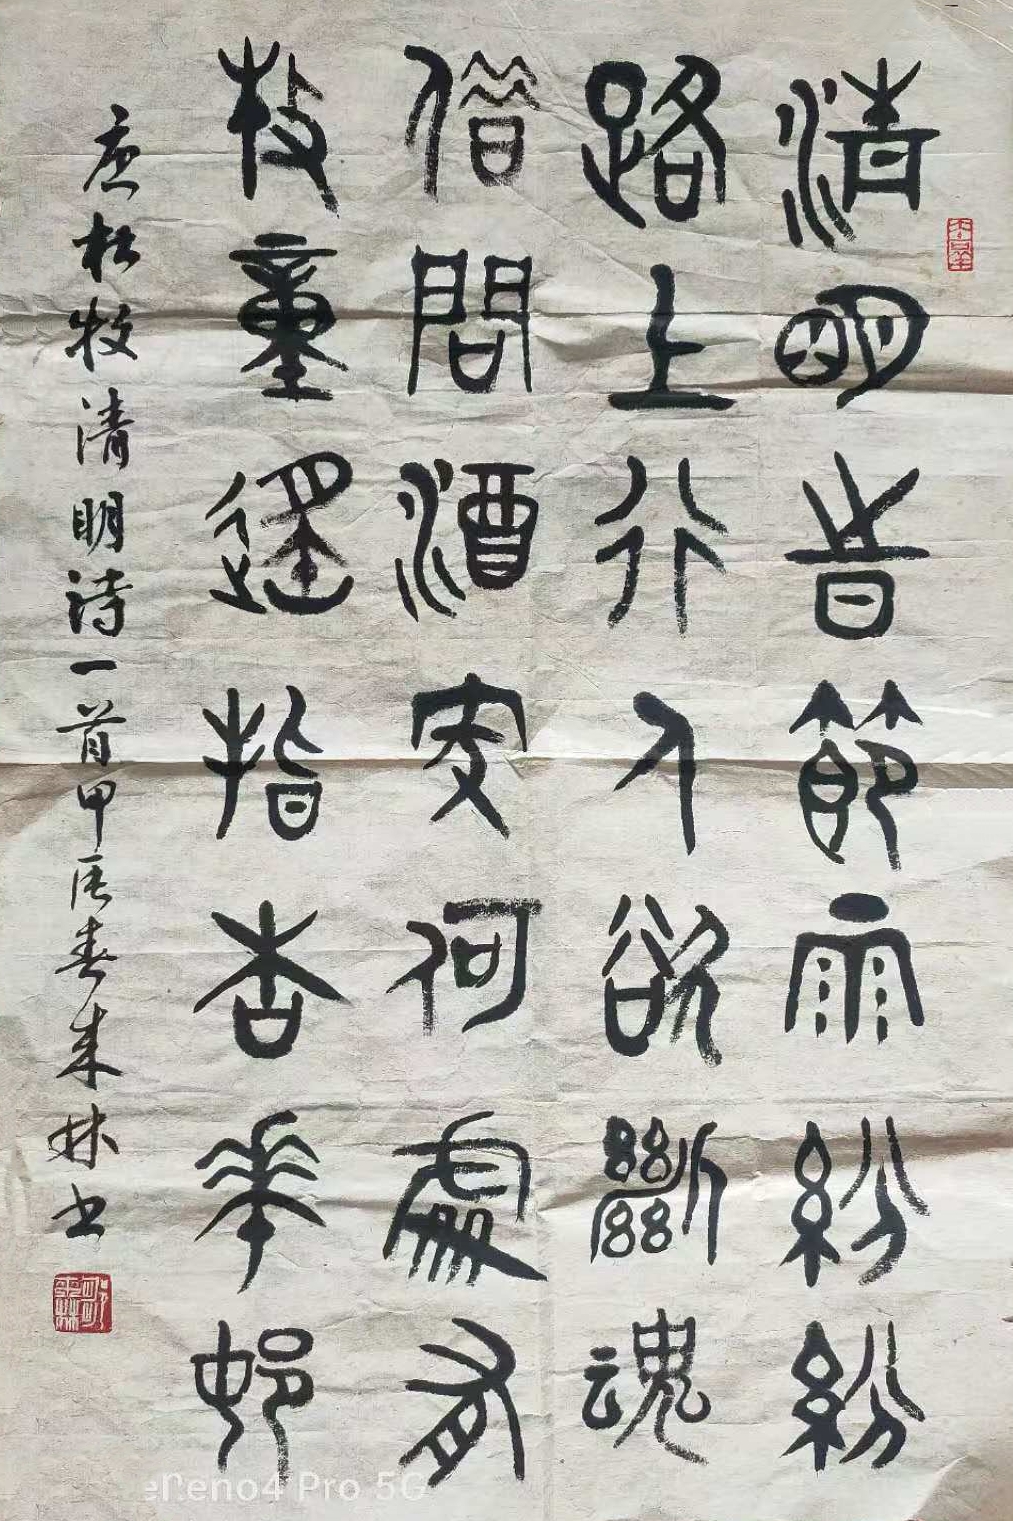 清明旹節雨紛紛
路上行人欲斷魂
借問酒家何處有
牧童遙指杏華邨
唐杜牧清明詩一首甲辰春來林书
Reno4 Pro 5G